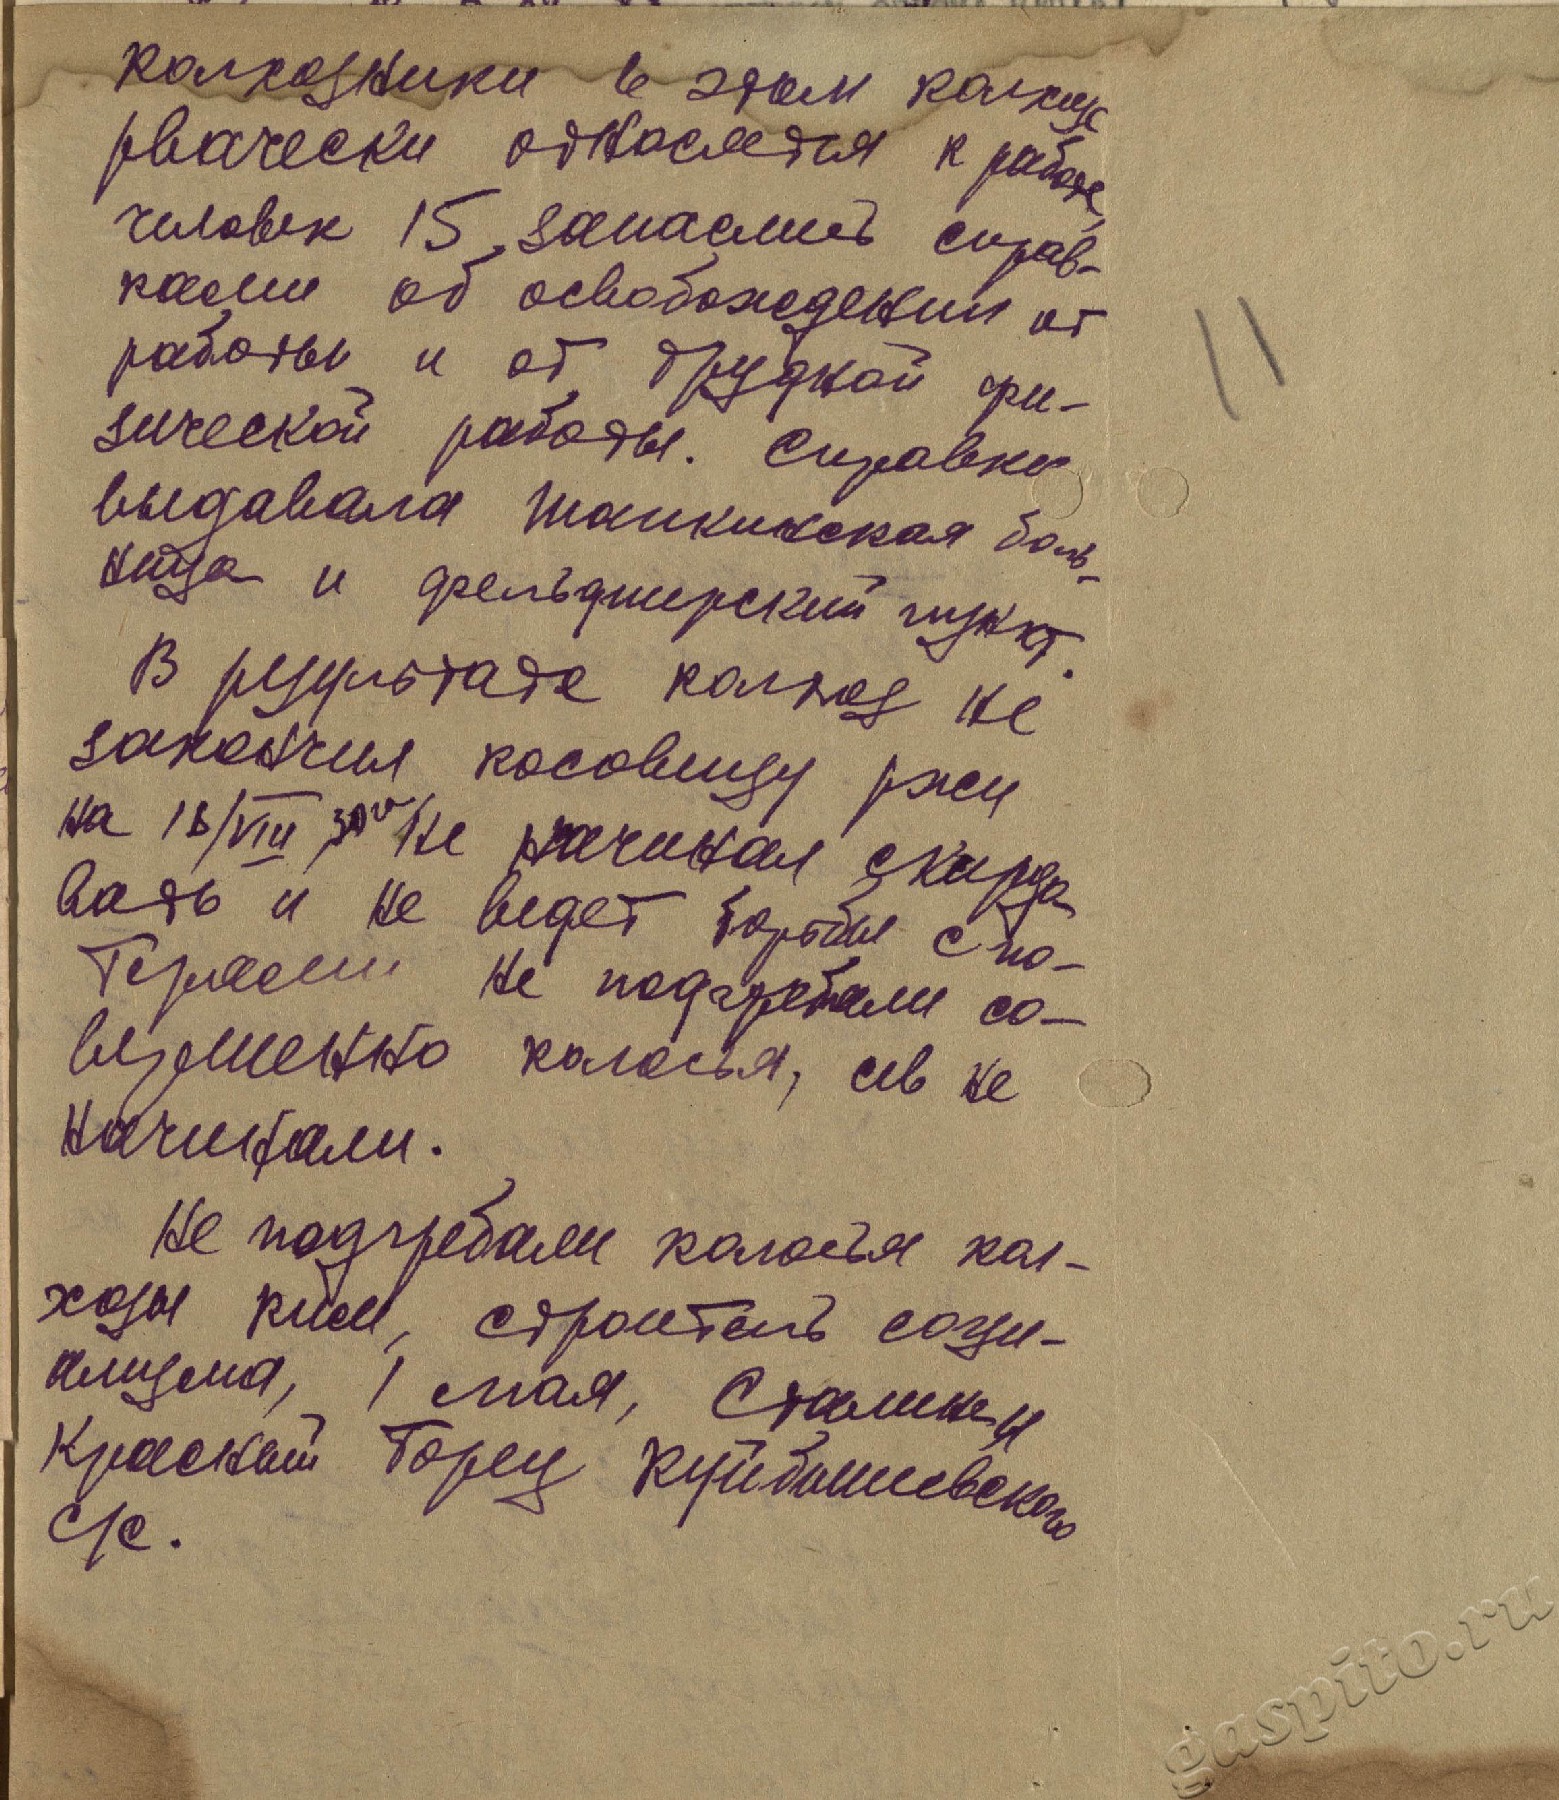 колхозники в этом колхозе
рвачески относятся к работе,
человек 15 запаслись справ-
ками об освобождении от
работы и от трудной фи-
зической работы. Справки
выдавала Шапкинская боль-
ница и фельдшерский пункт.
В результате колхоз не
закончил косовицу ржи
на 16/VIII не начинал скирдо
вать и не ведет борьбы с по-
терями не подгребали со-
вершенно колосья, сев не
начинали.
Не подгребали колосья кол-
хозы Ким, строитель соци-
ализма, 1 мая, Сталина и
Красный Борец Куйбышевского
с/с.
11
gaspito.ru